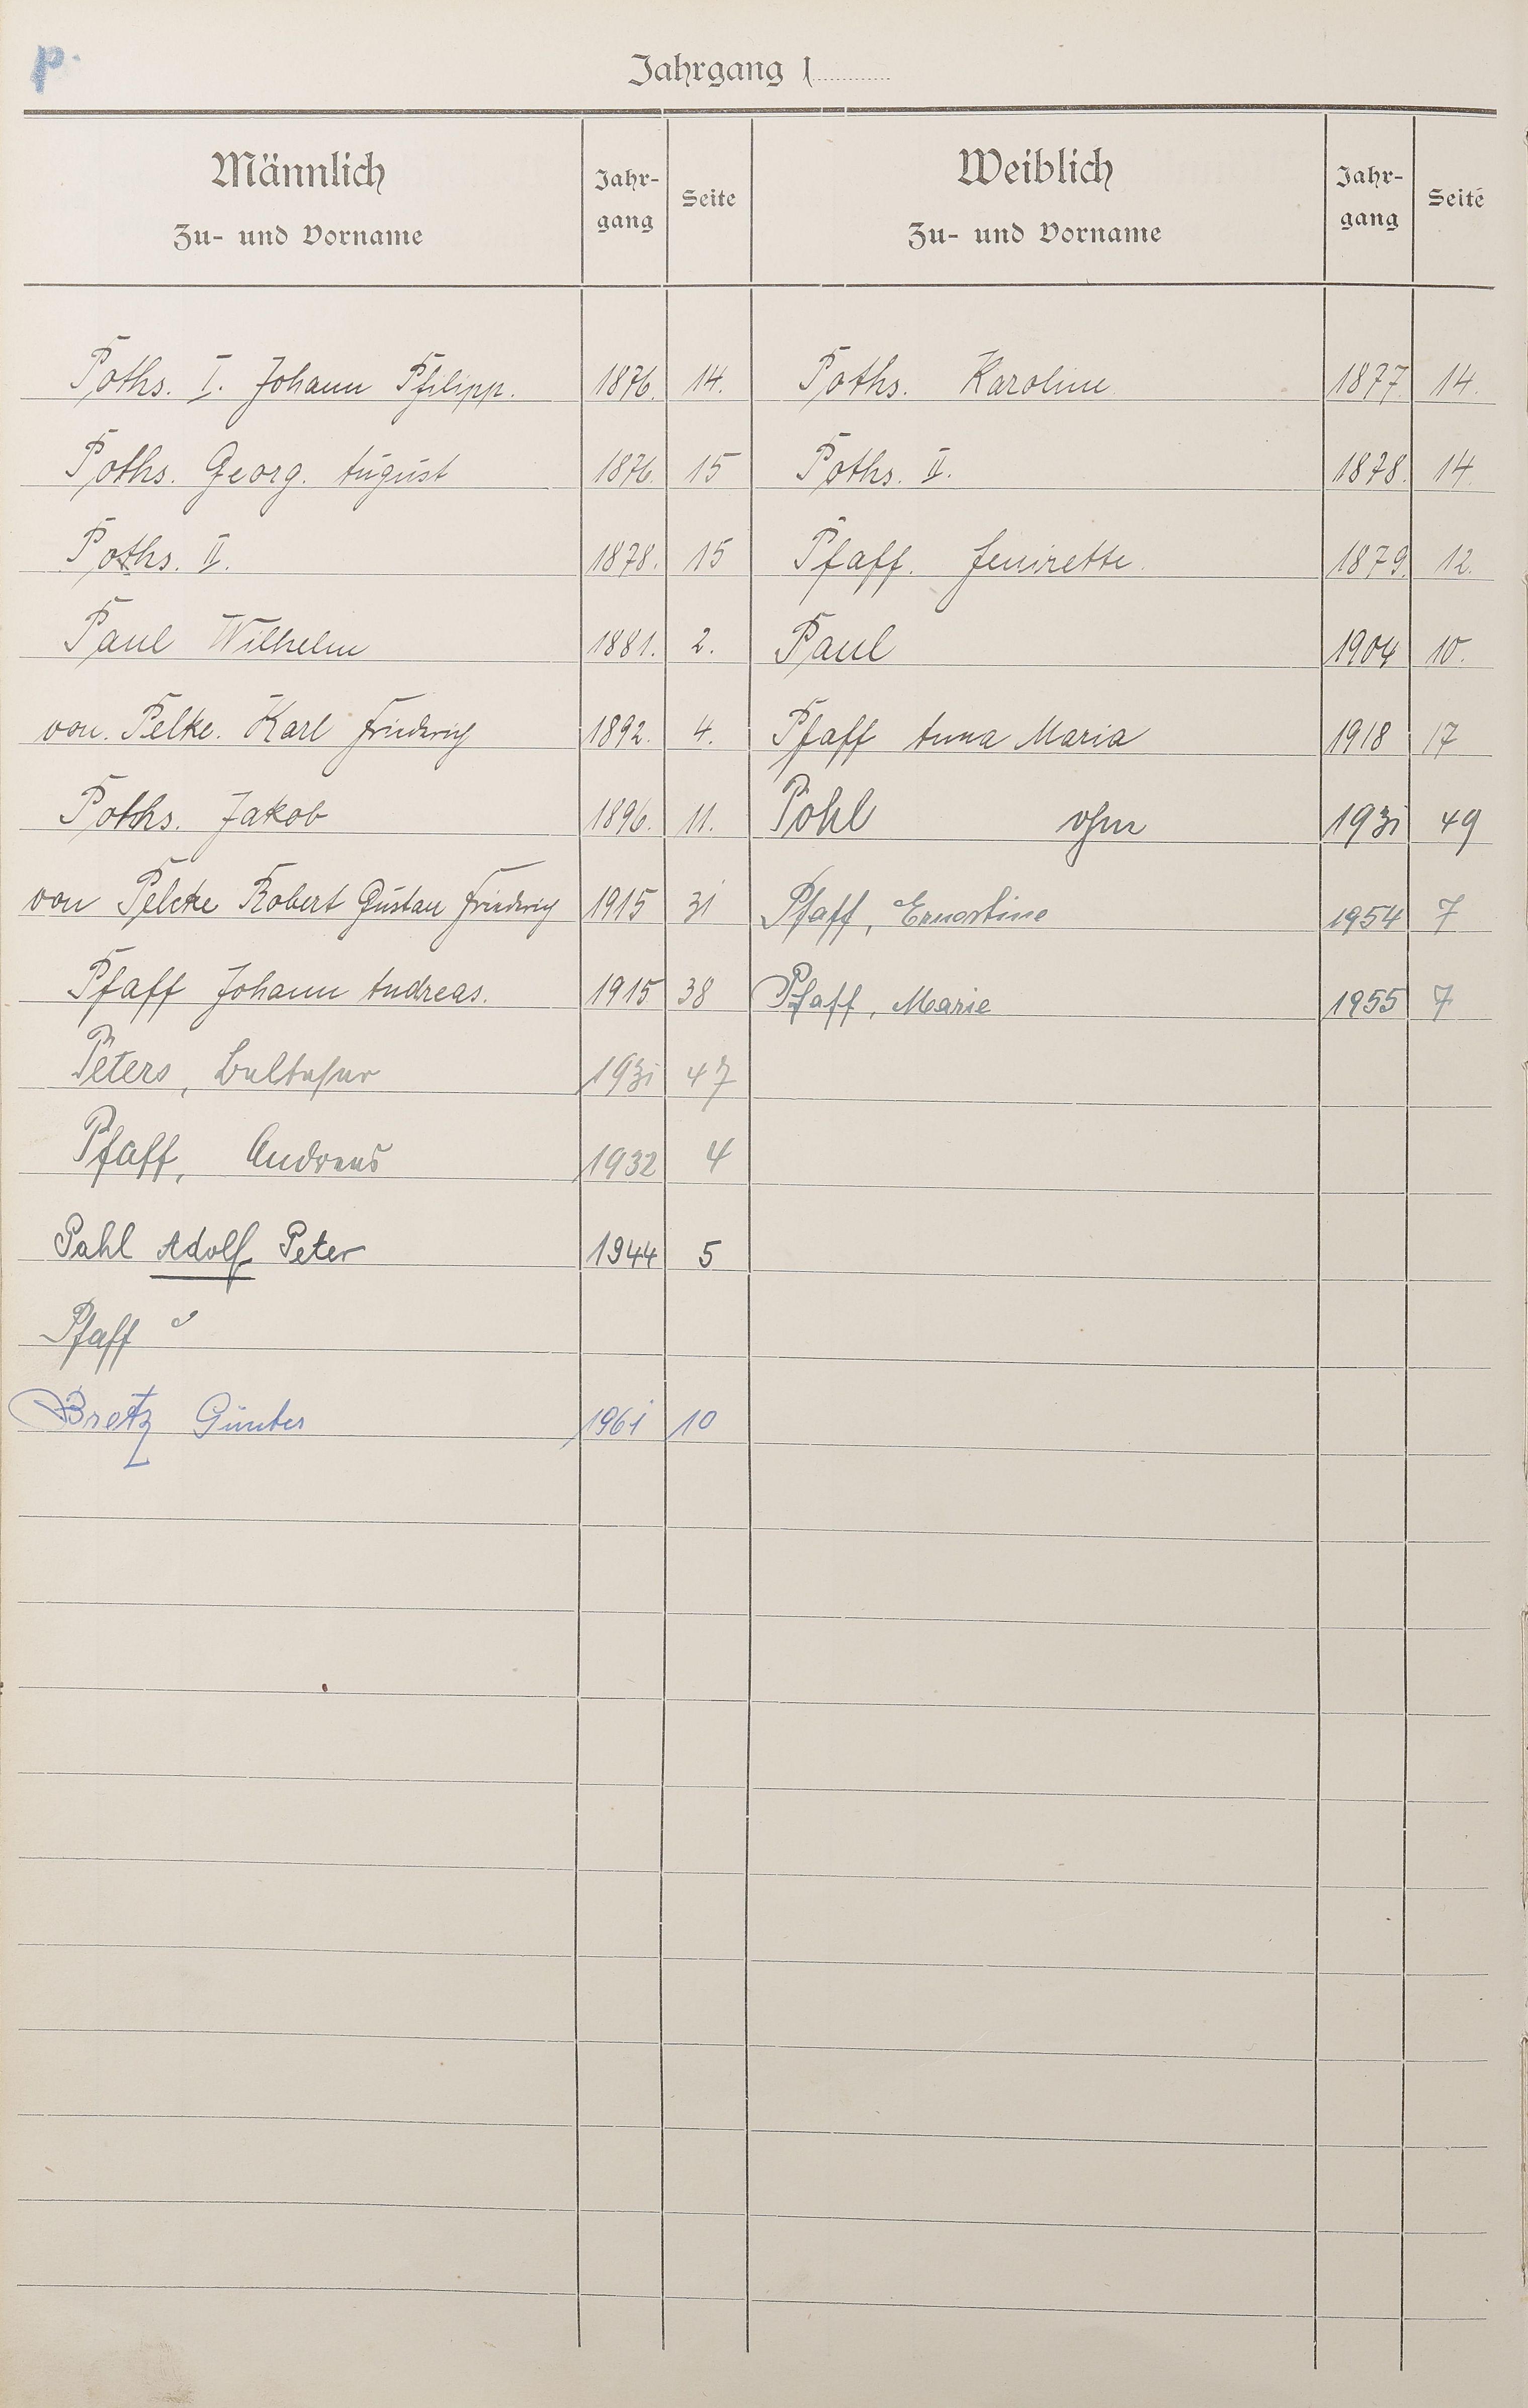 p.
Jahrgang 1
Männlich
Zu- und Vorname
Jahr-
gang
Seite
Weiblich
Zu- und Vorname
Jahr-
gang
Seite
Poths. I. Johann Philipp. 1876. 14. Poths. Karoline 1877. 14.
Poths. Georg. August 1876. 15 Poths. II. 1878. 14.
Poths. II. 1878. 15 Pfaff. 1879. 12.
Paul Wilhelm 1881. 2. Paul 1904 10.
von. Pelke. Karl Friedrich 1892. 4. Pfaff Anna Maria 1918 17
Poths. Jakob 1896. 11. Pohl ohne 1931 49
von Pelcke Robert Gustav Friedrich 1915 31 Pfaff, Ernestine 1954 7
Pfaff Johann Andreas. 1915 38 Pfaff, Marie 1955 7
Peters, Balthasar 1931 47
Pfaff, Andreas 1932 4
Pahl Adolf Peter 1944 5
Pfaff
Bretz Günter 1961 10